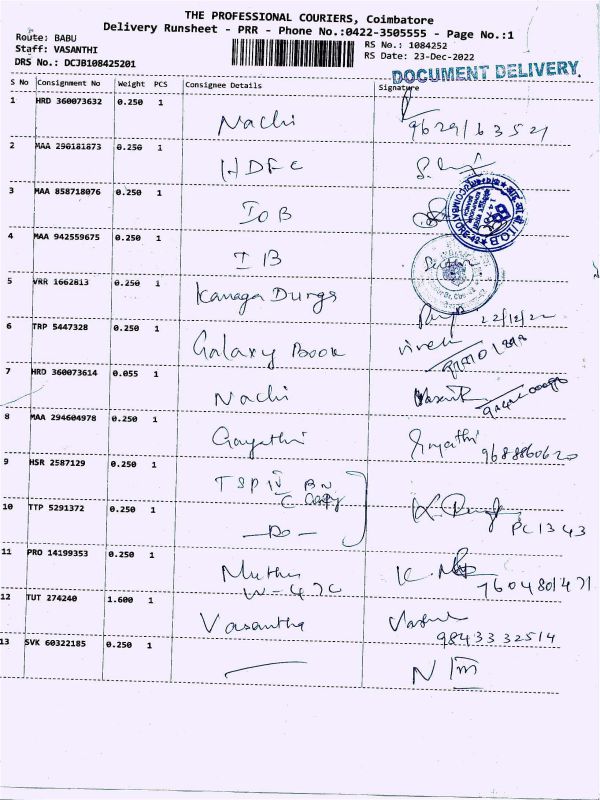 THE PROFESSIONAL COURIERS, Coimbatore
Delivery Runsheet - PRR - Phone No.:0422-3505555 - Page No.:1
Route: BABU
RS No.: 1084252
Staff: VASANTHI
RS Date: 23-Dec-2022
DRS No.: DCJB108425201
DOCUMENT DELIVERY.
S No Consignment No Weight PCS Consignee Details Signature
1 HRD 360073632 0.250 1 Nachi
2 MAA 296181873 0.250 1 HDFC
3 MAA 858718076 0.250 1 IOB
4 MAA 942559675 0.250 1 IB
5 VRR 1662813 0.250 1 Kanaga Durga
22/12/22
6 TRP 5447328 0.250 1 Galaxy Book vivek
7 HRD 360073614 0.055 1 Nachi
8 MAA 294604978 0.250 1 Gayathi Gayathi
9688860620
9 HSR 2587129 0.250 1 TSP IV BN
C Coy
10 TTP 5291372 0.250 1 —Do—
PC 1343
11 PRO 14199353 0.250 1 Muthu
7604801471
12 TUT 274240 1.600 1 Vasantha
9843332514
13 SVK 60322185 0.250 1